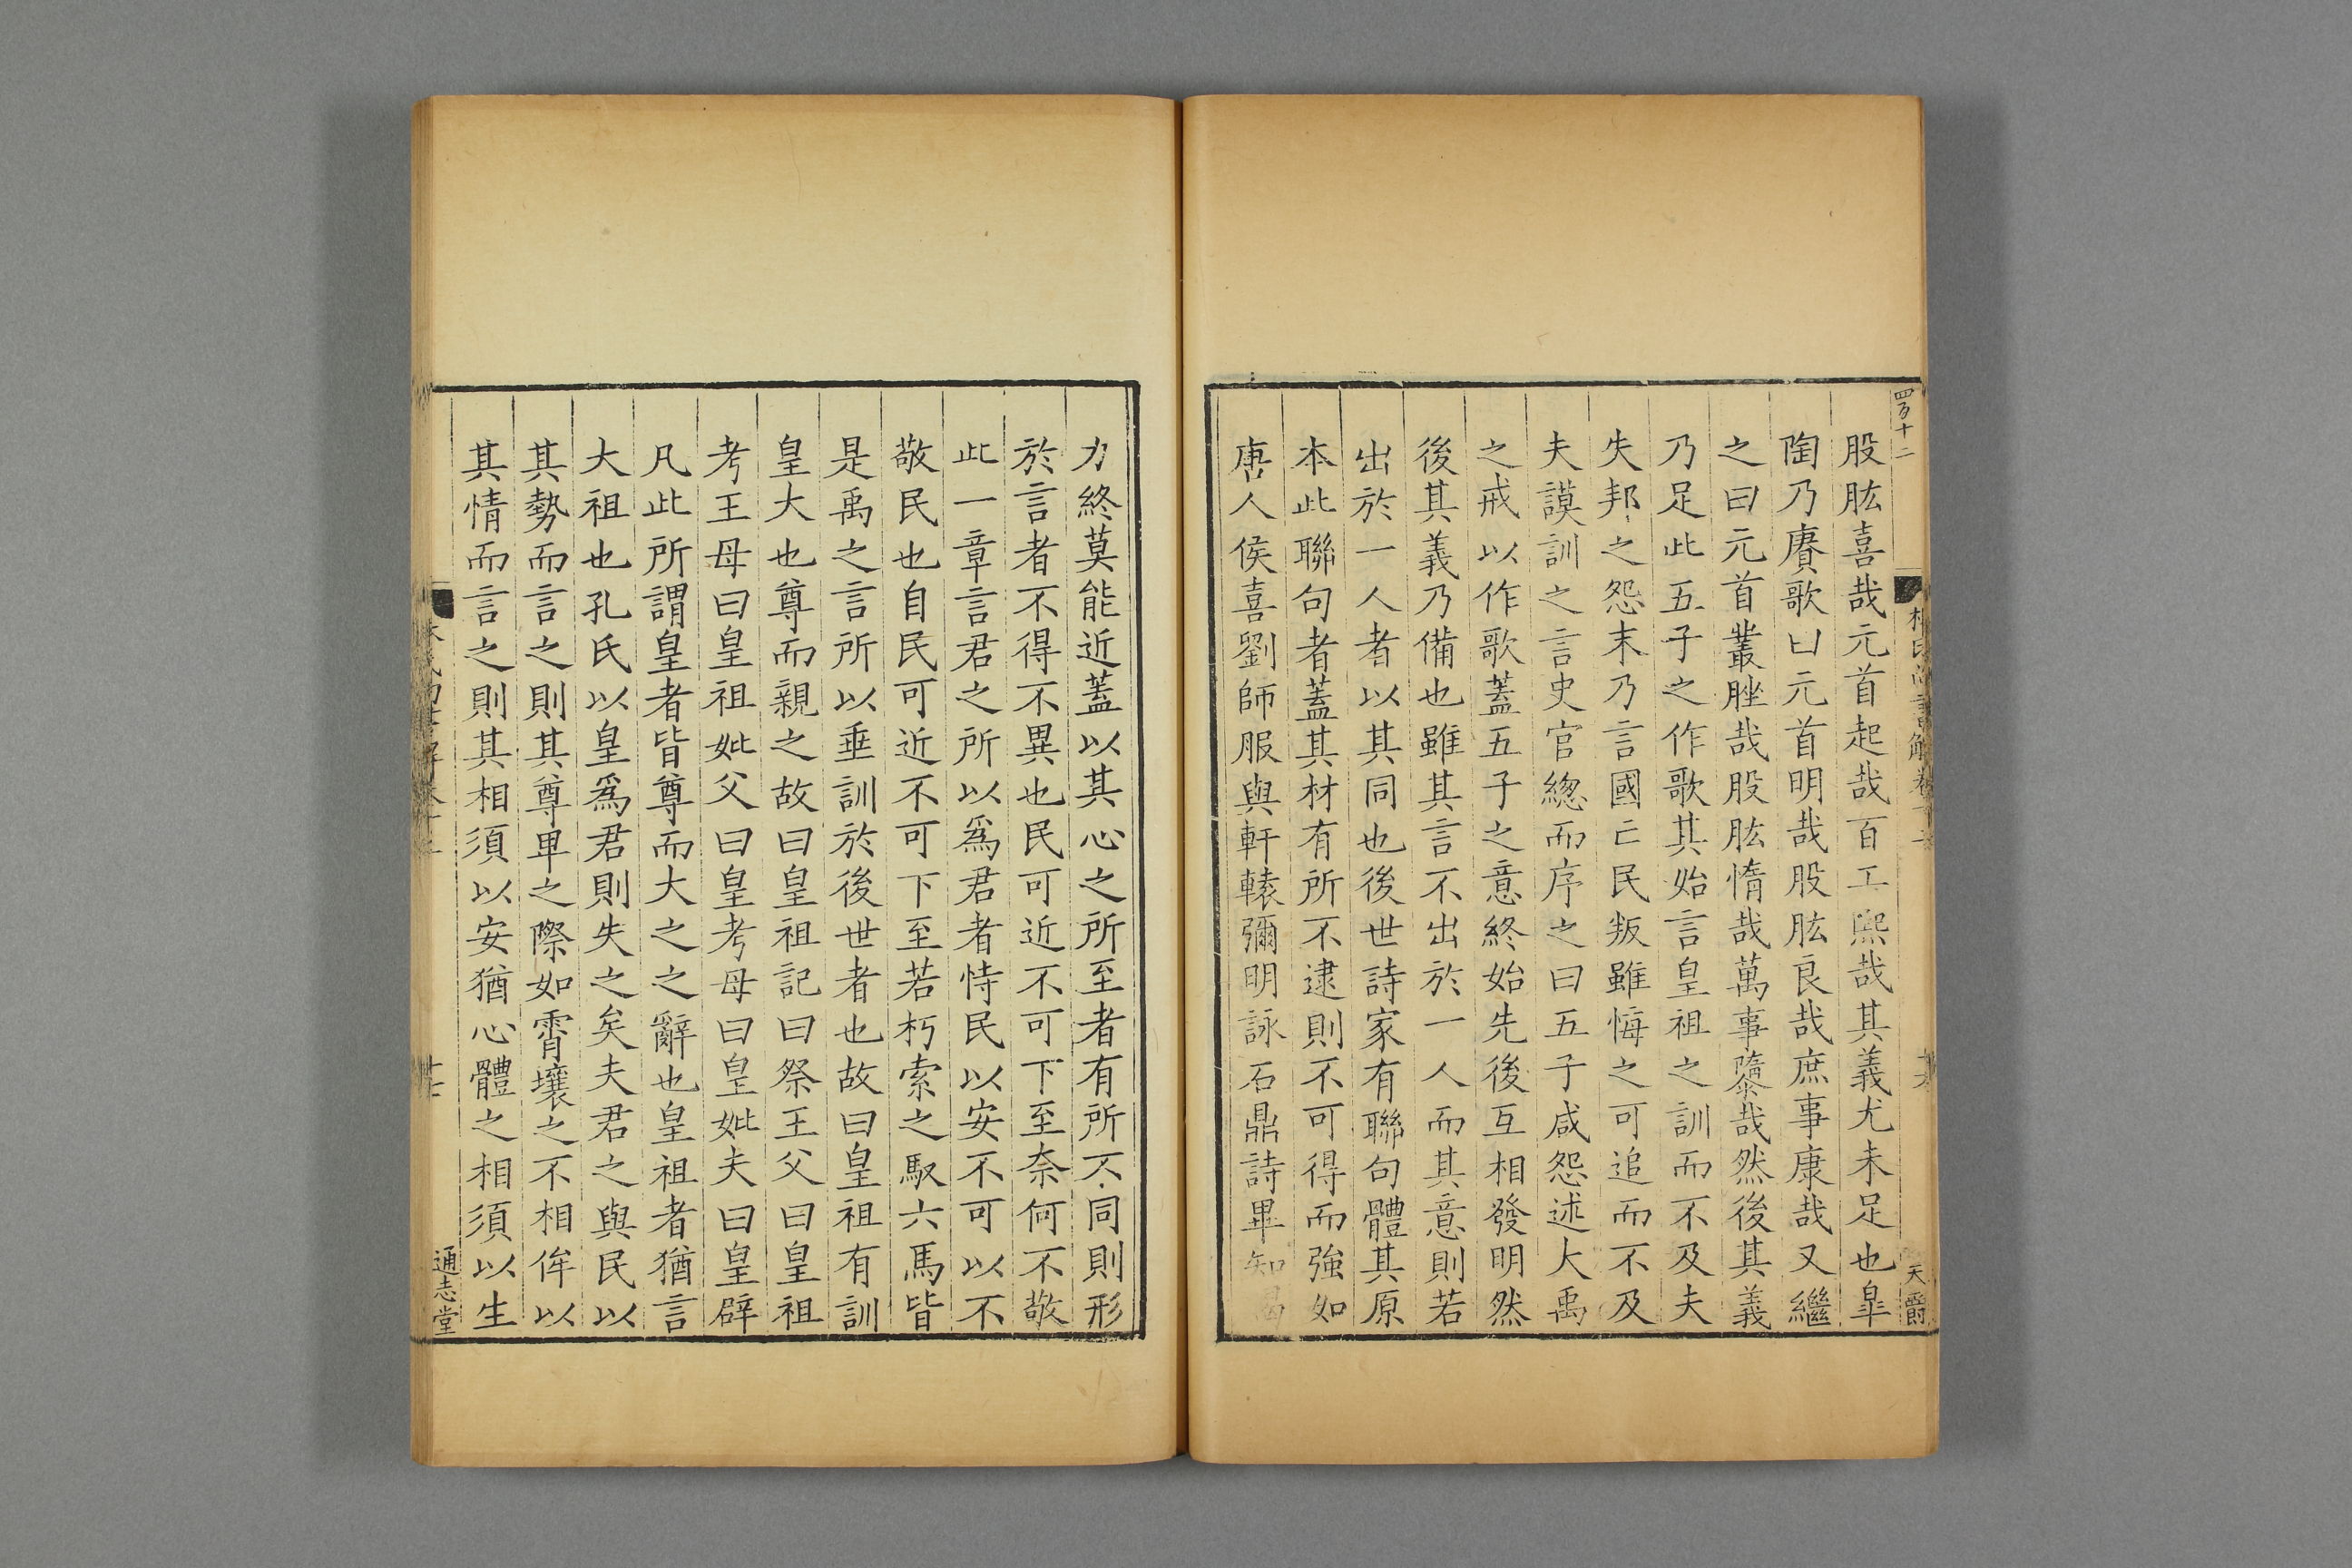 四百十二
林氏尚書解卷十二
天爵
股肱喜哉元首起哉百工熙哉其義尤未足也皐
陶乃賡歌曰元首明哉股肱良哉庶事康哉又繼
之曰元首叢脞哉股肱惰哉萬事隳哉然後其義
乃足此五子之作歌其始言皇祖之訓而不及夫
失邦之怨末乃言國亡民叛雖悔之可追而不及
夫謨訓之言史官總而序之曰五子咸怨述大禹
之戒以作歌蓋五子之意終始先後互相發明然
後其義乃備也雖其言不出於一人而其意則若
出於一人者以其同也後世詩家有聯句體其原
本此聯句者蓋其材有所不逮則不可得而強如
唐人侯喜劉師服與軒轅彌明詠石鼎詩畢知
力終莫能近蓋以其心之所至者有所不同則形
於言者不得不異也民可近不可下至奈何不敬
此一章言君之所以爲君者恃民以安不可以不
敬民也自民可近不可下至若朽索之馭六馬皆
是禹之言所以垂訓於後世者也故曰皇祖有訓
皇大也尊而親之故曰皇祖記曰祭王父曰皇祖
考王母曰皇祖妣父曰皇考母曰皇妣夫曰皇辟
凡此所謂皇者皆尊而大之之辭也皇祖者猶言
大祖也孔氏以皇爲君則失之矣夫君之與民以
其勢而言之則其尊卑之際如霄壤之不相侔以
其情而言之則其相須以安猶心體之相須以生
通志堂